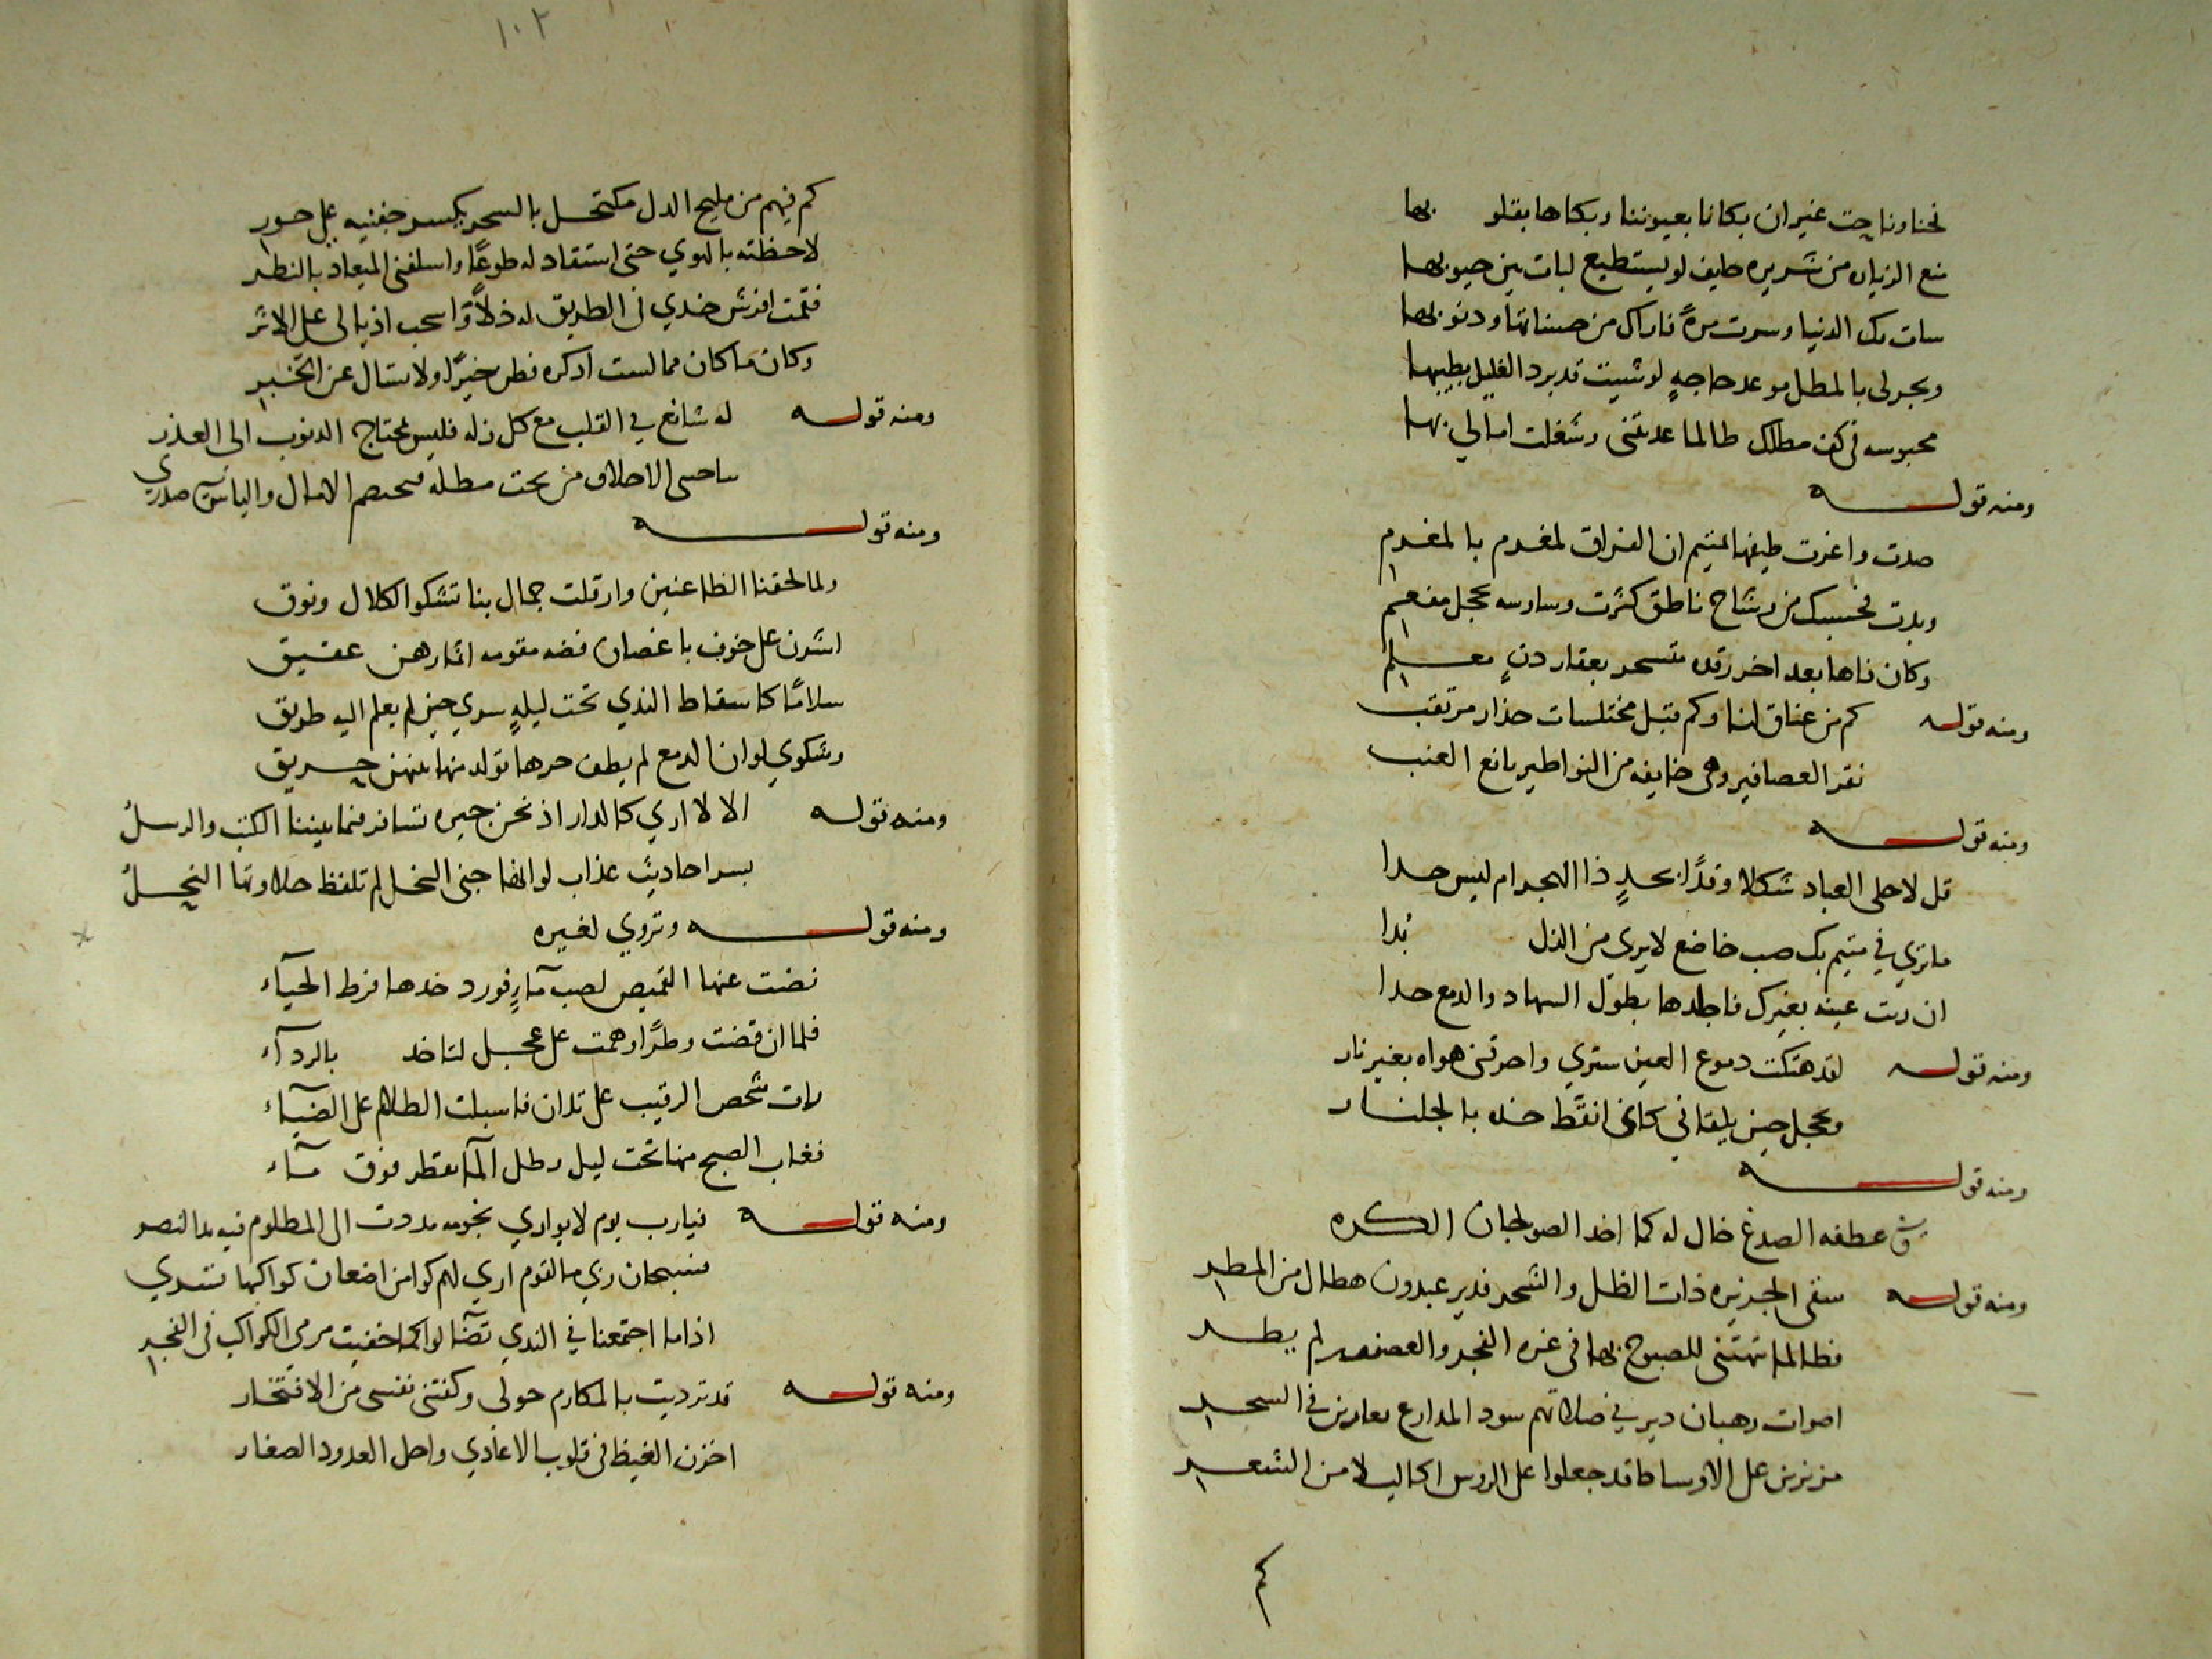 نحنا وناحت غير ان بكانا بعيوننا وبكاها بقلو بها
منع الزيارة من شريره خايف لو يستطيع لبات بين جيوبها
ساءت بك الدنيا وسرت مرةً فاراك من حسناتها وذنوبها
ويجر لي بالمطل موعد حاجةٍ لو شيت قد برد الغليل بطيبها
محبوسه في كف مطلك طالما عذبتني وشغلت امالي بها
ومنه قوله
صدت واغرت طيفها بمتيم ان الفراق لمغرم بالمغرم
وبدت فحسبك من وشاح ناطق كثرت وساوسه بحجل مفعم
وكان فاها بعد اخر رقده متسحر بعقار دنٍ معلم
ومنه قوله كم من عناق لنا وكم قبل مختلسات حذار مرتقب
نقر العصافير وهي خايفه من النواطير يانع العنب
ومنه قوله
قل لاحلى العباد شكلا وقدًا بجدٍ ذا الهجر ام ليس جدا
ما تري في متيم بك صب خاضع لا يرى من الذل بدا
ان رنت عينه بغيرك فاجلدها بطول السهاد والدمع حدا
ومنه قوله لقد هتكت دموع العين ستري واحرقني هواه بغير نار
ومحجل حين يلقاني كاني انقط خده بالجلنار
ومنه قوله
وفي عطفه الصدغ خال له كما اخذ الصولجان الكره
ومنه قوله سقى الجزيره ذات الظل والشجر فدير عبدون هطال من المطر
فطالما نبهتني للصبوح بها في غره الفجر والعصفور لم يطر
اصوات رهبان دير في صلاتهم سود المدارع نعارين في السحر
مزنرين على الاوساط قد جعلوا على الروس اكاليلا من الشعر
كم
١٠٢
كم فيهم من مليح الدل مكتحل بالسحر يكسر جفنيه على حور
لاحظته بالهوي حتى استقاد له طوعًا واسلفني الميعاد بالنظر
فقمت افرش خدي في الطريق له ذلاً واسحب اذيالي على الاثر
وكان ما كان مما لست اذكره فظن خيرًا ولا تسال عن الخبر
ومنه قوله له شافع في القلب مع كل زله فليس بمحتاج الذنوب الى العذر
ومنه قوله
ولما لحقنا الظاعنين وارقلت جمال بنا تشكوا الكلال ونوق
اشرن على خوف باغصان فضه مقومه اثمارهن عقيق
سلامًا كاسقاط الندي تحت ليلهٍ سري حين لم يعلم اليه طريق
وشكوي لو ان الدمع لم يطف حرها تولد منها بينهن حريق
ومنه قوله الا لا اري كالدار اذ نحن جيره تسافر فيما بيننا الكتب والرسلُ
بسر احاديث عذاب لو انها جنى النحل لم تلفظ حلاوتها النحلُ
ومنه قوله وتروي لغيره
نضت عنها القميص لصب مآءٍ فورد خدها فرط الحيآء
فلما ان قضت وطرًا وهمت على عجل لتاخد بالردآء
رات شخص الرقيب على تدان فاسبلت الظلام على الضيآء
فغاب الصبح منها تحت ليل وظل المآ يقطر فوق مآء
ومنه قوله فيارب يوم لا يواري نجومه مددت الى المظلوم فيه يد النصر
فسبحان ربي ما لقوم اري لهم كوامن اضغان كواكبها تسري
اذا ما اجتمعنا في الندي تضآلوا كما خفيت مرمى الكواكب في الفجر
ومنه قوله قد ترديت بالمكارم حولى وكفتني نفسى من الافتخار
اخزن الغيظ في قلوب الاعادي واحل العدو دار الصغار